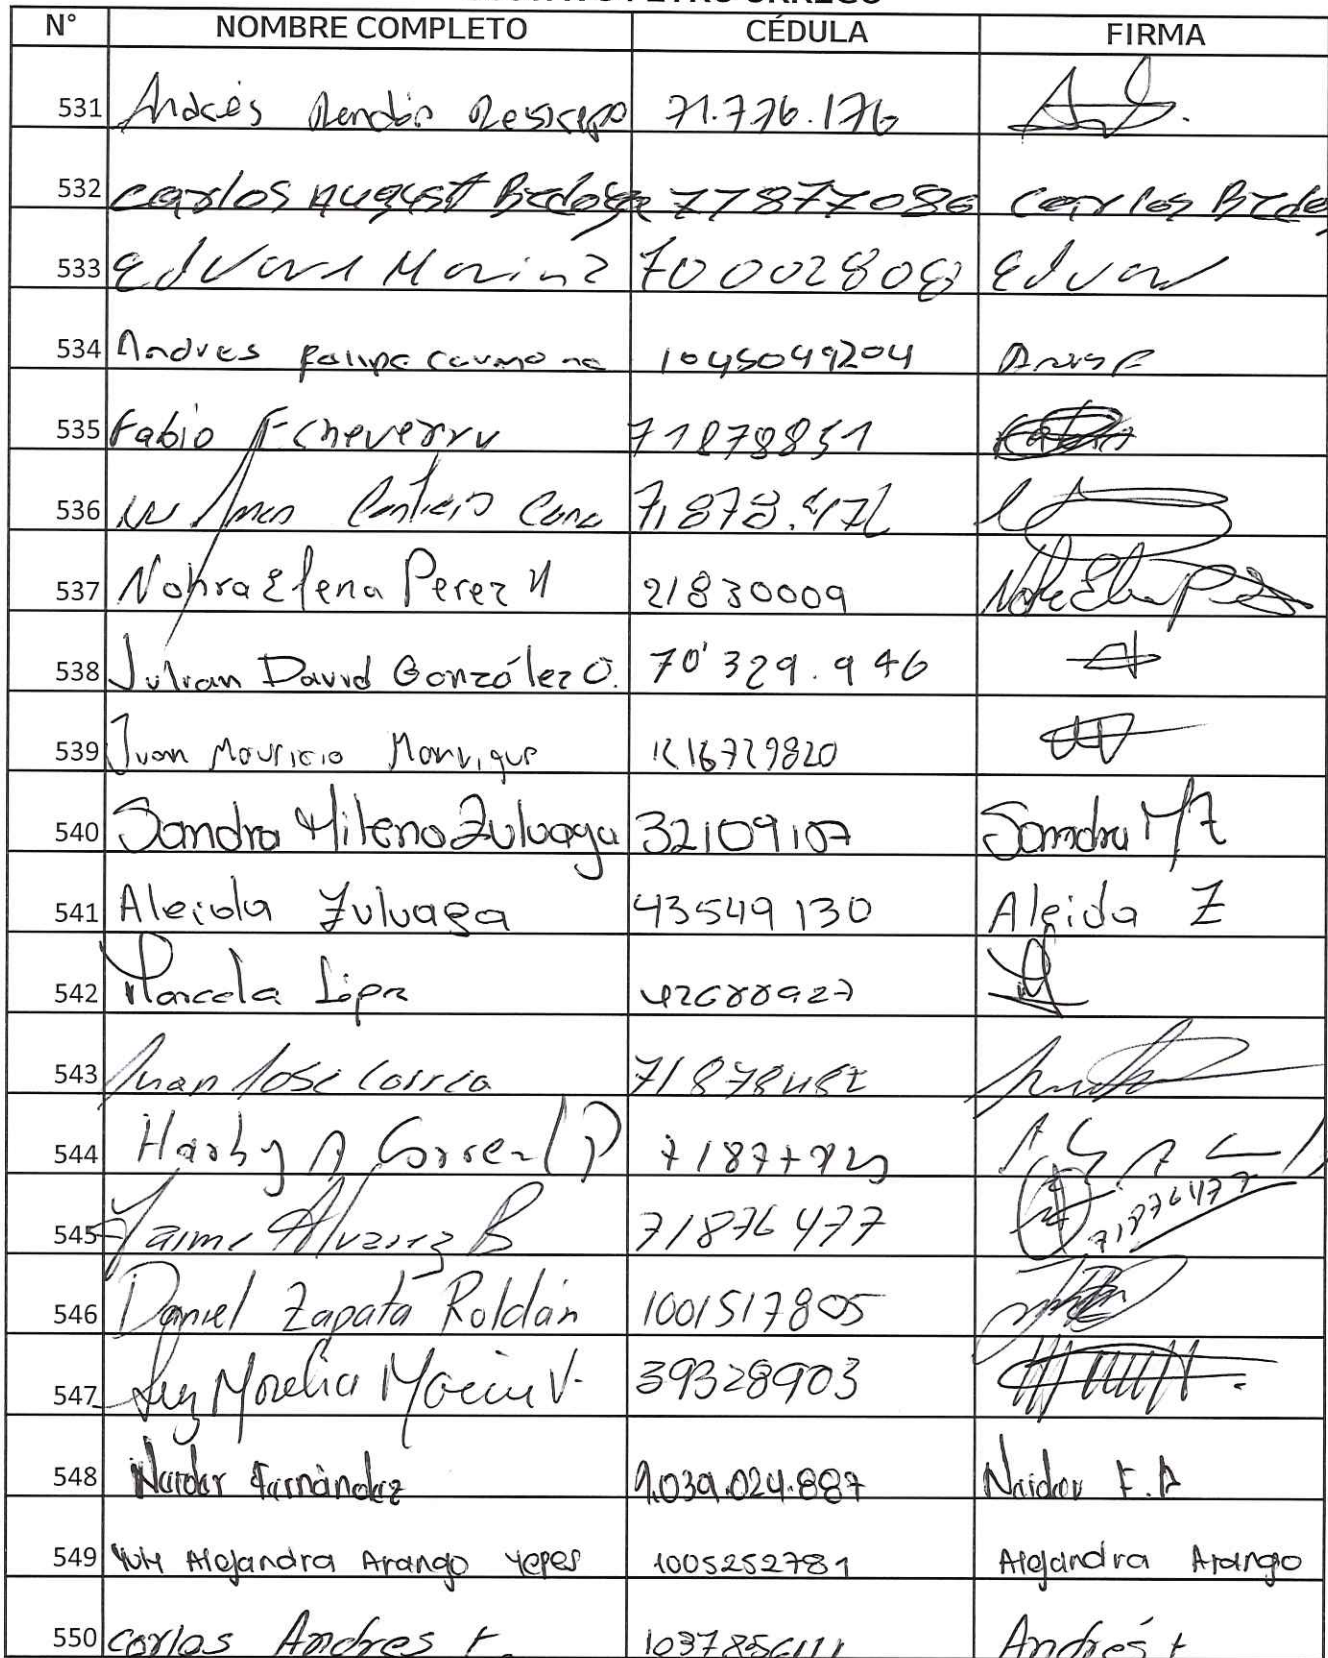 N° NOMBRE COMPLETO CÉDULA FIRMA
531 Andrés Rendón Restrepo 71.776.176
532 Carlos August Bedoya 77877086 Carlos Bede
533 Edvar Marin 70002808 Edvar
534 Andres Felipe Carmona 1045049204
535 Fabio Echeverry 71878851
536
537 Nohra Elena Perez H 21830009
538 Julian David González O. 70'329.946
539 Juan Mauricio Manrique 1216729820
540 Sandra Milena Zuluaga 32109107 Sandra MZ
541 Aleida Zuluaga 43549130 Aleida Z
542 Marcela
543 Juan Jose Correa 71878482
544 Harby A Correa
545 Jaime Alvarez B 71876477 71876477
546 Daniel Zapata Roldán 1001517805
547 Luz Morelia Marin V. 39328903
548 Naidar Fernández 1.039.024.887 Naidar F.
549 Alejandra Arango Yepes 1005252781 Alejandra Arango
550 Carlos Andres Andrés